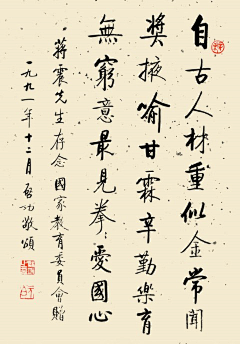 自古人材重似金常聞
獎掖喻甘霖辛勤樂育
無窮意最見拳=愛國心
蔣震先生存念國家教育委員會贈
一九九一年十二月啓功敬頌